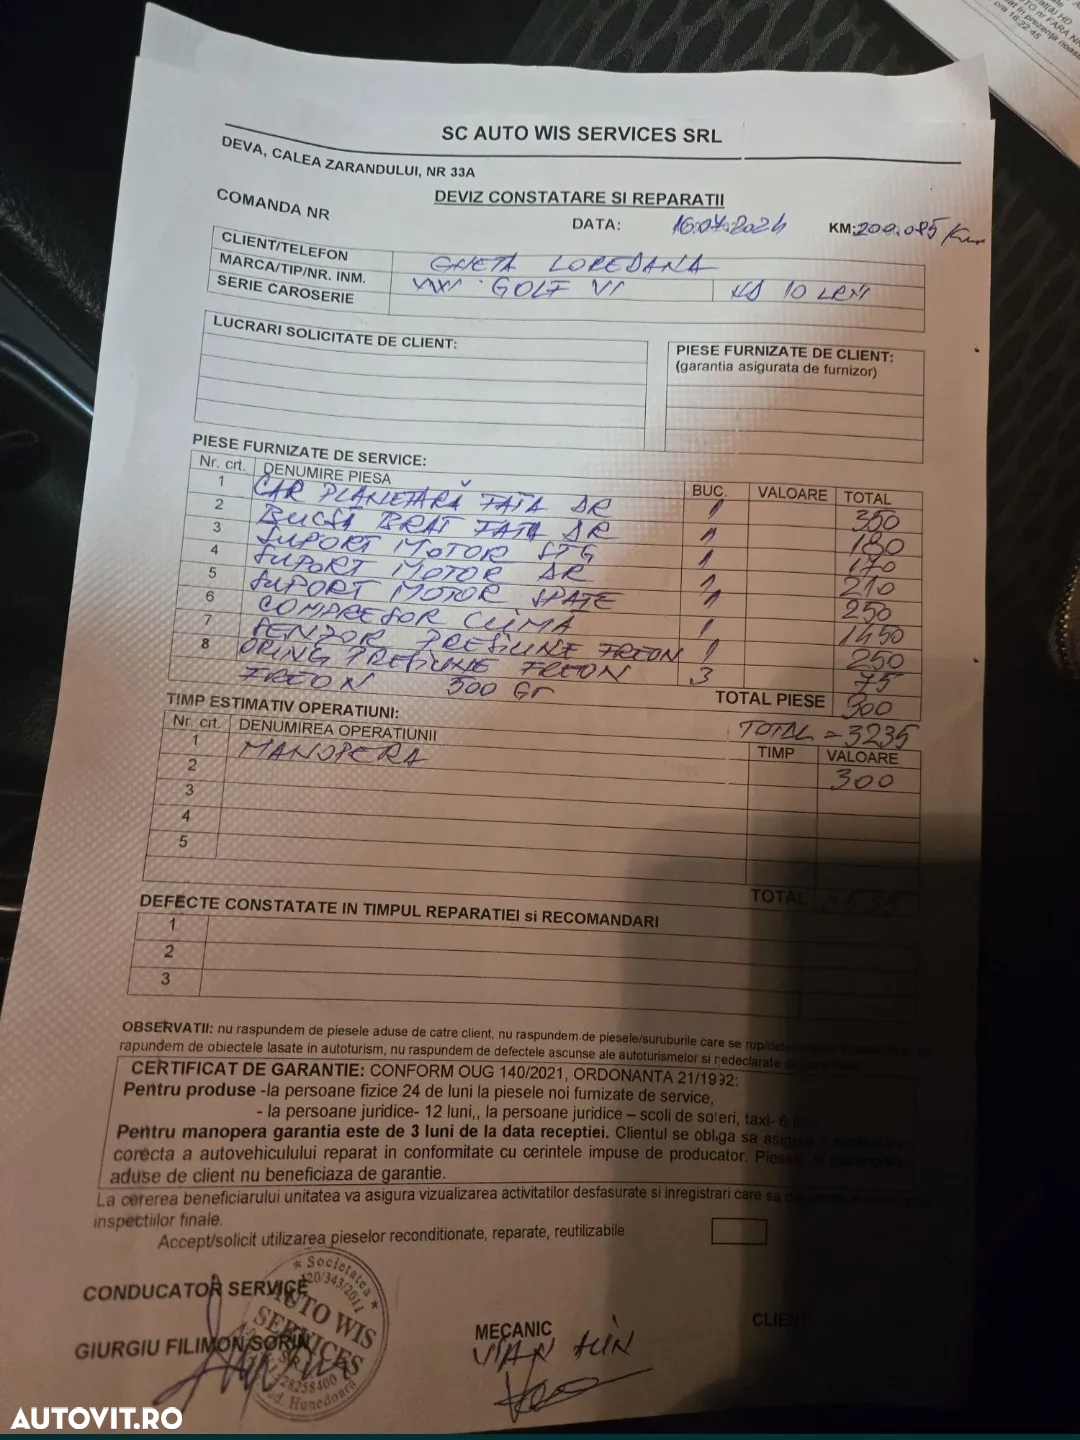 SC AUTO WIS SERVICES SRL
DEVA, CALEA ZARANDULUI, NR 33A
DEVIZ CONSTATARE SI REPARATII
COMANDA NR
DATA: 16.04.2024 KM: 209.085 Km
CLIENT/TELEFON GHETA LOREDANA
MARCA/TIP/NR. INM. VW GOLF VI HD 10 LRH
SERIE CAROSERIE
LUCRARI SOLICITATE DE CLIENT:
PIESE FURNIZATE DE CLIENT:
(garantia asigurata de furnizor)
PIESE FURNIZATE DE SERVICE:
Nr. crt. DENUMIRE PIESA BUC. VALOARE TOTAL
1 CAP PLANETARĂ FATA DR 1 350
2 BUCSA BRAT FATA DR 1 180
3 SUPORT MOTOR STG 1 170
4 SUPORT MOTOR DR 1 210
5 SUPORT MOTOR SPATE 1 250
6 COMPRESOR CLIMA 1 1450
7 SENZOR PRESIUNE FREON 1 250
8 ORING PRESIUNE FREON 3 75
FREON 500 Gr
TOTAL PIESE 300
TOTAL = 3235
TIMP ESTIMATIV OPERATIUNI:
Nr. crt. DENUMIREA OPERATIUNII TIMP VALOARE
1 MANOPERA 300
2
3
4
5
TOTAL 3535
DEFECTE CONSTATATE IN TIMPUL REPARATIEI si RECOMANDARI
1
2
3
OBSERVATII: nu raspundem de piesele aduse de catre client, nu raspundem de piesele/suruburile care se
rapundem de obiectele lasate in autoturism, nu raspundem de defectele ascunse ale autoturismelor si nedeclarate
CERTIFICAT DE GARANTIE: CONFORM OUG 140/2021, ORDONANTA 21/1992:
Pentru produse -la persoane fizice 24 de luni la piesele noi furnizate de service,
- la persoane juridice- 12 luni,, la persoane juridice – scoli de soferi, taxi- 6
Pentru manopera garantia este de 3 luni de la data receptiei. Clientul se obliga sa
corecta a autovehiculului reparat in conformitate cu cerintele impuse de producator.
aduse de client nu beneficiaza de garantie.
La cererea beneficiarului unitatea va asigura vizualizarea activitatilor desfasurate si inregistrari care sa
inspectiilor finale.
Accept/solicit utilizarea pieselor reconditionate, reparate, reutilizabile
CONDUCATOR SERVICE
GIURGIU FILIMON SORIN
MECANIC
CLIENT
Societatea
J20/343/2011
AUTO WIS
SERVICES
SRL
28258400
Jud. Hunedoara
AUTOVIT.RO